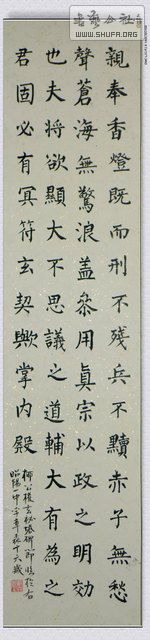 書藝公社
WWW.SHUFA.ORG
親奉香燈既而刑不殘兵不黷赤子無愁
聲蒼海無驚浪蓋叅用真宗以政之明効
也夫將欲顯大不思議之道輔大有為之
君固必有冥符玄契歟掌內殿
柳公權玄秘塔碑節臨於右